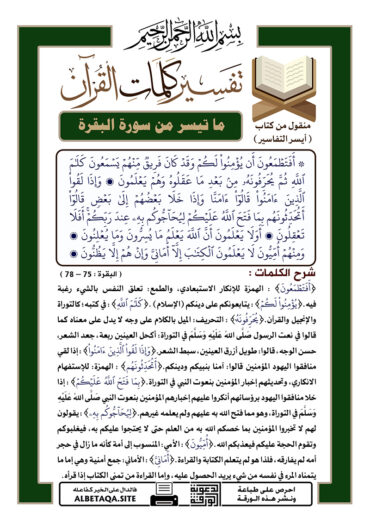 بسم الله الرحمن الرحيم
تفسير كلمات القرآن
منقول من كتاب
( أيسر التفاسير )
ما تيسر من سورة البقرة
۞ أَفَتَطْمَعُونَ أَن يُؤْمِنُوا۟ لَكُمْ وَقَدْ كَانَ فَرِيقٌ مِّنْهُمْ يَسْمَعُونَ كَلَٰمَ
ٱللَّهِ ثُمَّ يُحَرِّفُونَهُۥ مِنۢ بَعْدِ مَا عَقَلُوهُ وَهُمْ يَعْلَمُونَ ۝ وَإِذَا لَقُوا۟
ٱلَّذِينَ ءَامَنُوا۟ قَالُوٓا۟ ءَامَنَّا وَإِذَا خَلَا بَعْضُهُمْ إِلَىٰ بَعْضٍ قَالُوٓا۟
أَتُحَدِّثُونَهُم بِمَا فَتَحَ ٱللَّهُ عَلَيْكُمْ لِيُحَآجُّوكُم بِهِۦ عِندَ رَبِّكُمْ أَفَلَا
تَعْقِلُونَ ۝ أَوَلَا يَعْلَمُونَ أَنَّ ٱللَّهَ يَعْلَمُ مَا يُسِرُّونَ وَمَا يُعْلِنُونَ ۝
وَمِنْهُمْ أُمِّيُّونَ لَا يَعْلَمُونَ ٱلْكِتَٰبَ إِلَّآ أَمَانِىَّ وَإِنْ هُمْ إِلَّا يَظُنُّونَ ۝
شرح الكلمات : ( البقرة : 75 – 78 )
﴿أَفَتَطْمَعُونَ﴾ : الهمزة للإنكار الاستبعادي، والطمع: تعلق النفس بالشيء رغبة
فيه. ﴿يُؤْمِنُوا۟ لَكُمْ﴾ : يتابعونكم على دينكم (الإسلام) . ﴿كَلَٰمَ ٱللَّهِ﴾ : في كتبه؛ كالتوراة
والإنجيل والقرآن. ﴿يُحَرِّفُونَهُۥ﴾ : التحريف: الميل بالكلام على وجه لا يدل على معناه كما
قالوا في نعت الرسول صَلَّى اللهُ عَلَيْهِ وَسَلَّمَ في التوراة: أكحل العينين ربعة، جعد الشعر،
حسن الوجه، قالوا: طويل أزرق العينين، سبط الشعر. ﴿وَإِذَا لَقُوا۟ ٱلَّذِينَ ءَامَنُوا۟﴾ : إذا لقي
منافقوا اليهود المؤمنين قالوا: آمنا بنبيكم ودينكم. ﴿أَتُحَدِّثُونَهُم﴾ : الهمزة: للإستفهام
الانكاري، وتحديثهم إخبار المؤمنين بنعوت النبي في التوراة. ﴿بِمَا فَتَحَ ٱللَّهُ عَلَيْكُمْ﴾ : إذا
خلا منافقوا اليهود برؤسائهم أنكروا عليهم إخبارهم المؤمنين بنعوت النبي صَلَّى اللهُ عَلَيْهِ
وَسَلَّمَ في التوراة، وهو مما فتح الله به عليهم ولم يعلمه غيرهم. ﴿لِيُحَآجُّوكُم بِهِۦ﴾ : يقولون
لهم لا تخبروا المؤمنين بما خصكم الله به من العلم حتى لا يحتجوا عليكم به، فيغلبوكم
وتقوم الحجة عليكم فيعذبكم الله . ﴿أُمِّيُّونَ﴾ : الأمي: المنسوب إلى أمه كأنه ما زال في حجر
أمه لم يفارقه، فلذا هو لم يتعلم الكتابة والقراءة. ﴿أَمَانِىَّ﴾ : الأماني: جمع أمنية وهي إما ما
يتمناه المرء في نفسه من شيء يريد الحصول عليه، وإما القراءة من تمنى الكتاب إذا قرأه.
احرص على طباعة
ونشر هذه الورقة
فالدال على الخير كفاعله
ALBETAQA.SITE